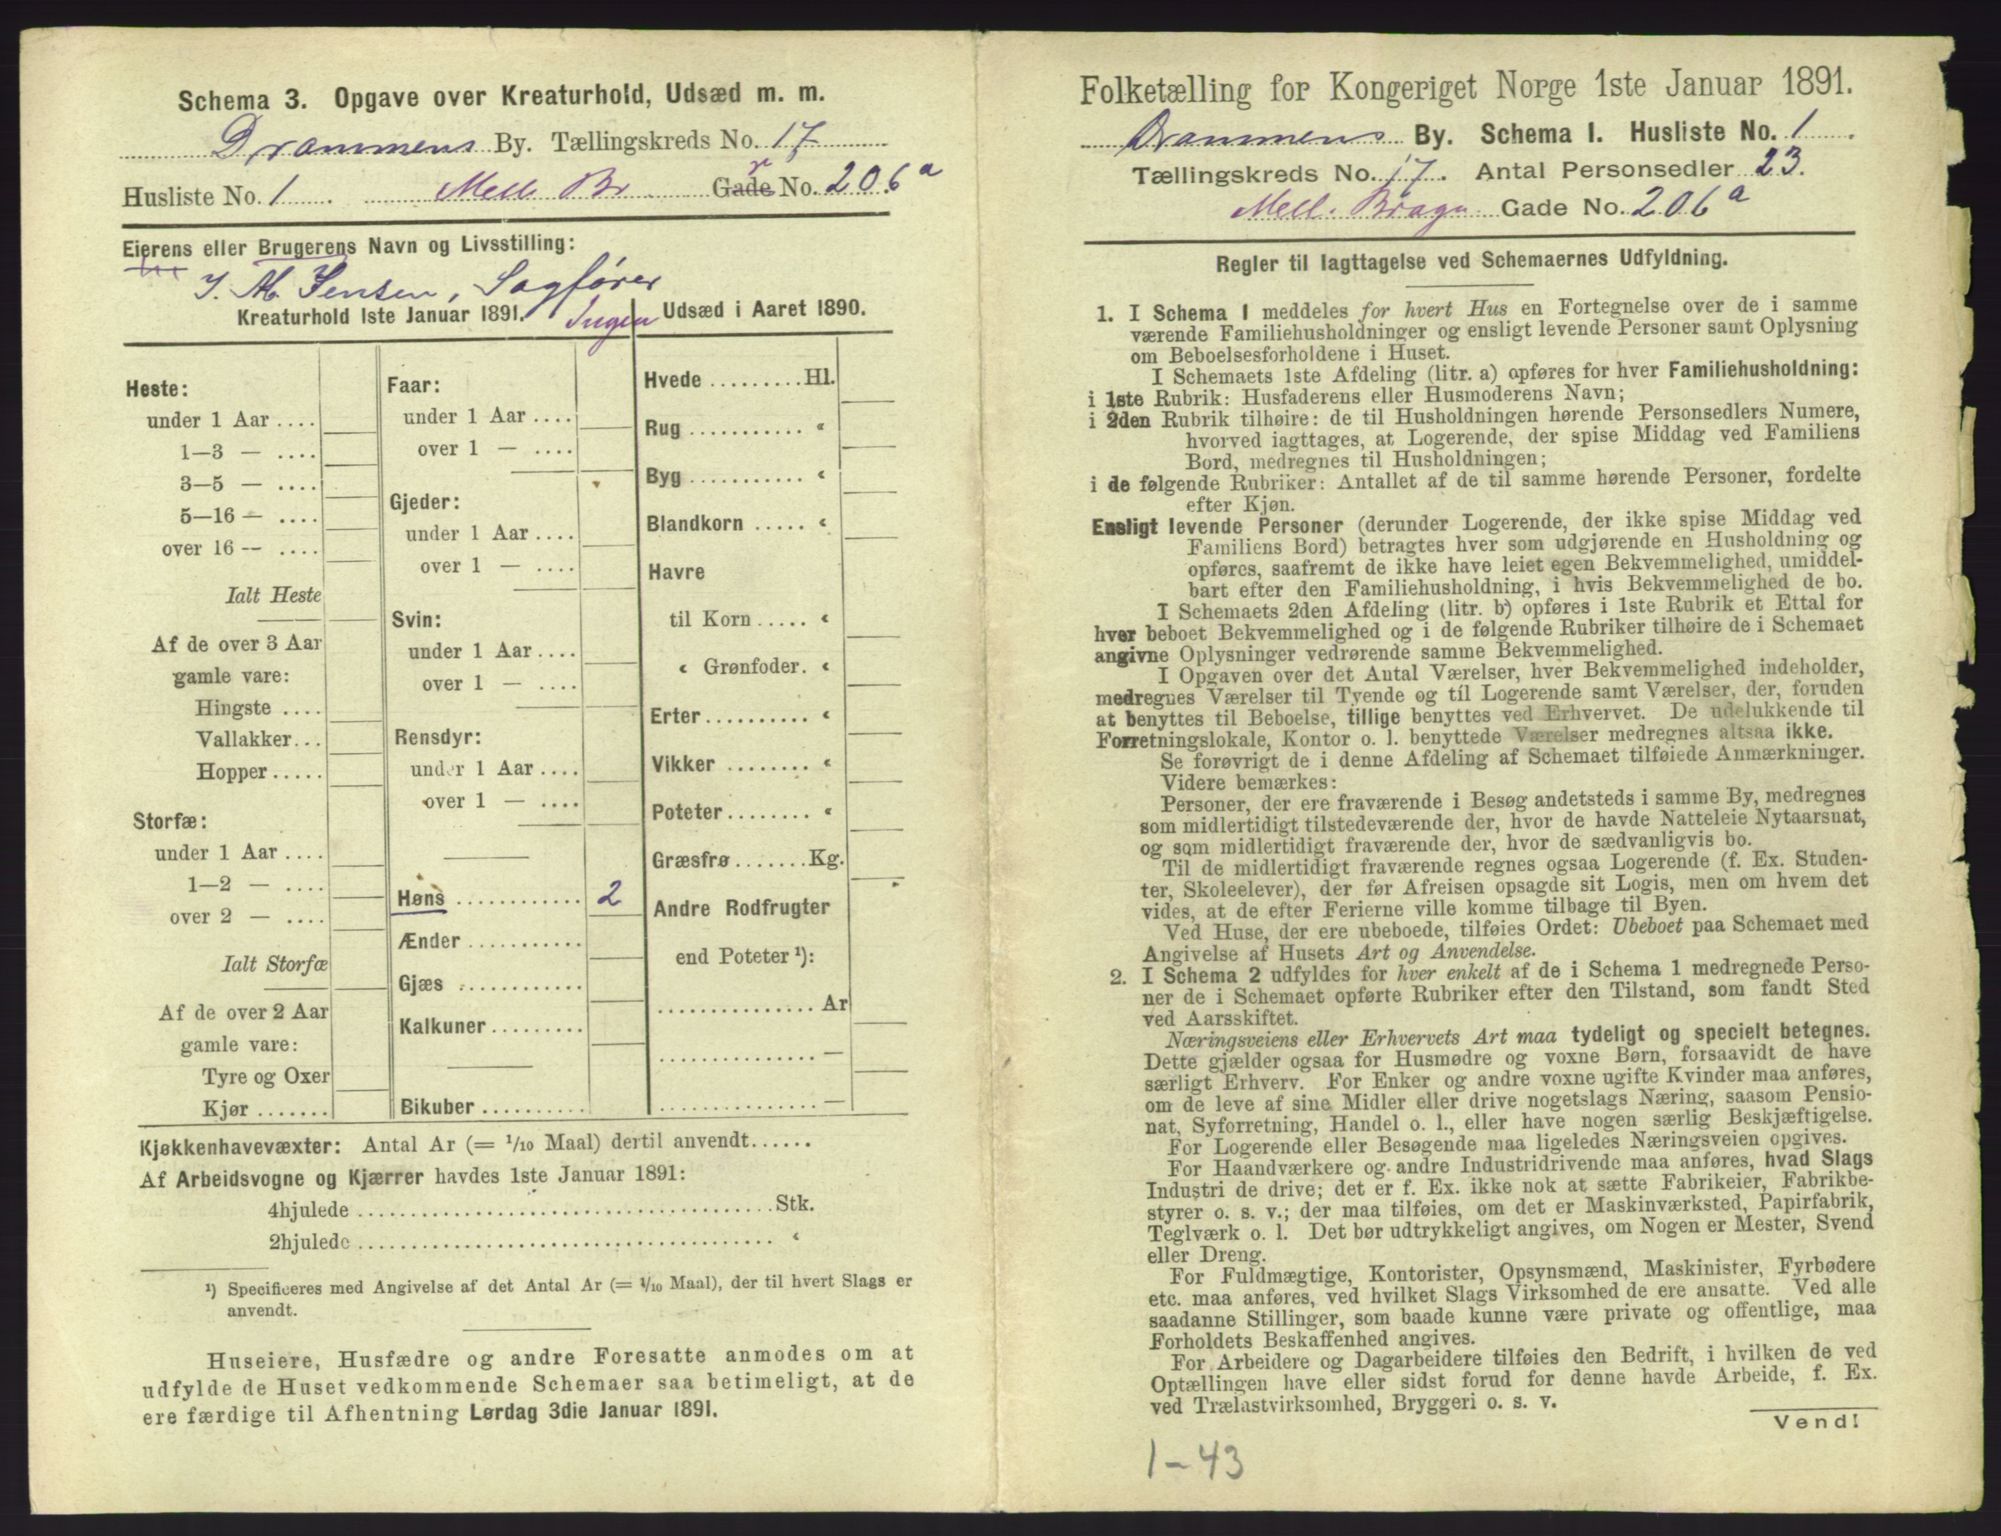 Schema 3. Opgave over Kreaturhold, Udsæd m. m.
Drammens By. Tællingskreds No. 17
Husliste No. 1 Mell. Br. Gade No. 206 a
Eierens eller Brugerens Navn og Livsstilling:
J. M. Jensen, Sagfører
Kreaturhold 1ste Januar 1891. Ingen Udsæd i Aaret 1890.
Heste:
under 1 Aar ....
1—3 — ....
3—5 — ....
5—16 — ....
over 16 -- ....
Ialt Heste
Af de over 3 Aar
gamle vare:
Hingste ....
Vallakker...
Hopper.....
Storfæ:
under 1 Aar ....
1—2 — ....
over 2 — ....
Ialt Storfæ
Af de over 2 Aar
gamle vare:
Tyre og Oxer
Kjør .......
Faar:
under 1 Aar ....
over 1 — ....
Gjeder:
under 1 Aar ....
over 1 — ....
Svin:
under 1 Aar ....
over 1 — ....
Rensdyr:
under 1 Aar ....
over 1 — ....
Høns ............ 2
Ænder ...........
Gjæs ............
Kalkuner.........
Bikuber ..........
Hvede .........Hl.
Rug ........... "
Byg ........... "
Blandkorn ..... "
Havre
til Korn ..... "
" Grønfoder. "
Erter.......... "
Vikker ........ "
Poteter ........ "
Græsfrø .......Kg.
Andre Rodfrugter
end Poteter ¹):
............... Ar
............... —
............... —
Kjøkkenhavevæxter: Antal Ar (= 1/10 Maal) dertil anvendt......
Af Arbeidsvogne og Kjærrer havdes 1ste Januar 1891:
4hjulede ........................................ Stk.
2hjulede ........................................ "
¹) Specificeres med Angivelse af det Antal Ar (= 1/10 Maal), der til hvert Slags er
anvendt.
Huseiere, Husfædre og andre Foresatte anmodes om at
udfylde de Huset vedkommende Schemaer saa betimeligt, at de
ere færdige til Afhentning Lørdag 3die Januar 1891.
Folketælling for Kongeriget Norge 1ste Januar 1891.
Drammens By. Schema 1. Husliste No. 1
Tællingskreds No. 17. Antal Personsedler 23.
Mell. Brage Gade No. 206 a
Regler til Iagttagelse ved Schemaernes Udfyldning.
1. I Schema 1 meddeles for hvert Hus en Fortegnelse over de i samme
værende Familiehusholdninger og ensligt levende Personer samt Oplysning
om Beboelsesforholdene i Huset.
I Schemaets 1ste Afdeling (litr. a) opføres for hver Familiehusholdning:
i 1ste Rubrik: Husfaderens eller Husmoderens Navn;
i 2den Rubrik tilhøire: de til Husholdningen hørende Personsedlers Numere,
hvorved iagttages, at Logerende, der spise Middag ved Familiens
Bord, medregnes til Husholdningen;
i de følgende Rubriker: Antallet af de til samme hørende Personer, fordelte
efter Kjøn.
Ensligt levende Personer (derunder Logerende, der ikke spise Middag ved
Familiens Bord) betragtes hver som udgjørende en Husholdning og
opføres, saafremt de ikke have leiet egen Bekvemmelighed, umiddel-
bart efter den Familiehusholdning, i hvis Bekvemmelighed de bo.
I Schemaets 2den Afdeling (litr. b) opføres i 1ste Rubrik et Ettal for
hver beboet Bekvemmelighed og i de følgende Rubriker tilhøire de i Schemaet
angivne Oplysninger vedrørende samme Bekvemmelighed.
I Opgaven over det Antal Værelser, hver Bekvemmelighed indeholder,
medregnes Værelser til Tyende og til Logerende samt Værelser, der, foruden
at benyttes til Beboelse, tillige benyttes ved Erhvervet. De udelukkende til
Forretningslokale, Kontor o. l. benyttede Værelser medregnes altsaa ikke.
Se forøvrigt de i denne Afdeling af Schemaet tilføiede Anmærkninger.
Videre bemærkes:
Personer, der ere fraværende i Besøg andetsteds i samme By, medregnes
som midlertidigt tilstedeværende der, hvor de havde Natteleie Nytaarsnat,
og som midlertidigt fraværende der, hvor de sædvanligvis bo.
Til de midlertidigt fraværende regnes ogsaa Logerende (f. Ex. Studen-
ter, Skoleelever), der før Afreisen opsagde sit Logis, men om hvem det
vides, at de efter Ferierne ville komme tilbage til Byen.
Ved Huse, der ere ubeboede, tilføies Ordet: Ubeboet paa Schemaet med
Angivelse af Husets Art og Anvendelse.
2. I Schema 2 udfyldes for hver enkelt af de i Schema 1 medregnede Perso-
ner de i Schemaet opførte Rubriker efter den Tilstand, som fandt Sted
ved Aarsskiftet.
Næringsveiens eller Erhvervets Art maa tydeligt og specielt betegnes.
Dette gjælder ogsaa for Husmødre og voxne Børn, forsaavidt de have
særligt Erhverv. For Enker og andre voxne ugifte Kvinder maa anføres,
om de leve af sine Midler eller drive nogetslags Næring, saasom Pensio-
nat, Syforretning, Handel o. l., eller have nogen særlig Beskjæftigelse.
For Logerende eller Besøgende maa ligeledes Næringsveien opgives.
For Haandværkere og andre Industridrivende maa anføres, hvad Slags
Industri de drive; det er f. Ex. ikke nok at sætte Fabrikeier, Fabrikbe-
styrer o. s. v.; der maa tilføies, om det er Maskinværksted, Papirfabrik,
Teglværk o. l. Det bør udtrykkeligt angives, om Nogen er Mester, Svend
eller Dreng.
For Fuldmægtige, Kontorister, Opsynsmænd, Maskinister, Fyrbødere
etc. maa anføres, ved hvilket Slags Virksomhed de ere ansatte. Ved alle
saadanne Stillinger, som baade kunne være private og offentlige, maa
Forholdets Beskaffenhed angives.
For Arbeidere og Dagarbeidere tilføies den Bedrift, i hvilken de ved
Optællingen have eller sidst forud for denne havde Arbeide, f. Ex.
ved Trælastvirksomhed, Bryggeri o. s. v.
Vend!
1-43